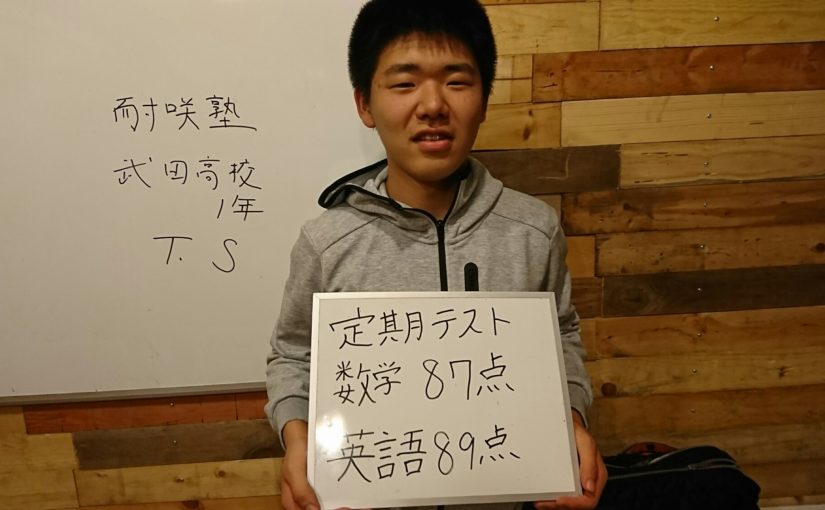 耐咲塾
武田高校
1年
T. S
定期テスト
数学 87点
英語 89点